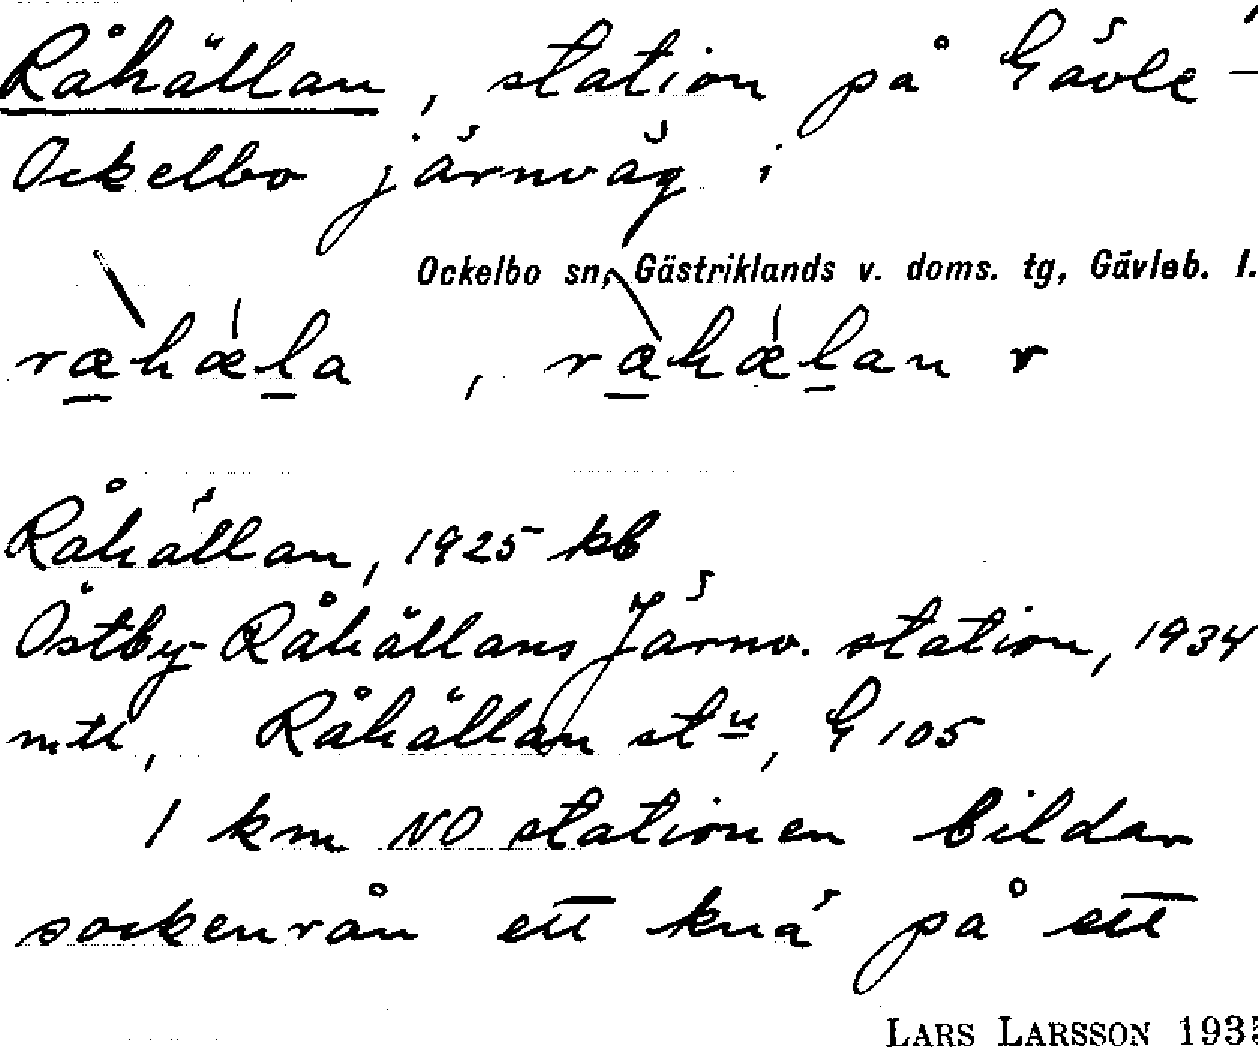 Råhällan, station på Gävle-
Ockelbo järnväg i
Ockelbo sn, Gästriklands v. doms. tg, Gävleb. l.
ræhæla, ræhælan v
Råhällan, 1925 kb
Östby-Råhällans Järnv. station, 1934
mtl, Råhällan stn, G 105
1 km NO stationen bildar
sockenrån ett knä på ett
LARS LARSSON 1935